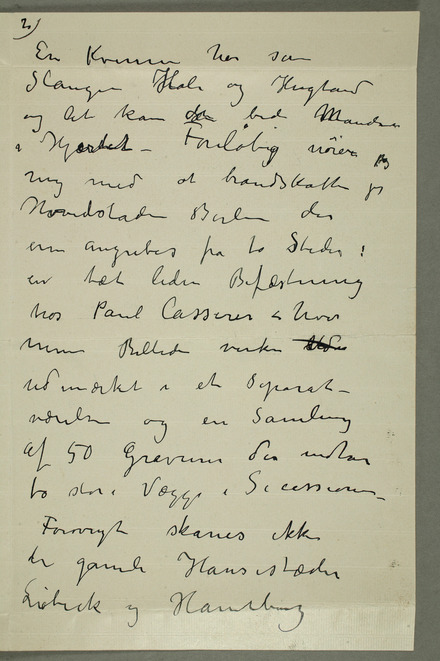 2)
En Kvinne har som
Slangen Hale og Hugtand
og det kan bide Manden
i Hjertet – Foreløbig nøier jeg
mig med at brandskatte
Hovedstaden Berlin der
nu angribes fra to Steder:
en tæt liden Befæstning
hos Paul Cassirer hvor
mine Billeder virker
udmærket i et Separat–
værelse og en Samling
af 50 Gravurer der indtar
to store Vægge i Secessionen–
Forøvrigt skånes ikke
de gamle Hansestæder
Lübeck og Hamburg